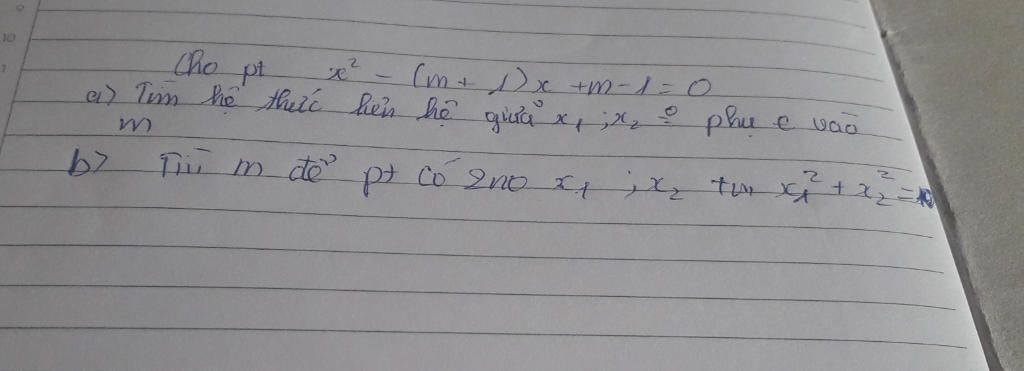 Cho pt x² - (m + 1)x + m - 1 = 0
a) Tìm hệ thức liên hệ giữa x₁ ; x₂ phụ € vào
m
b) Tìm m để pt có 2no x₁ ; x₂ t/m x₁² + x₂² =